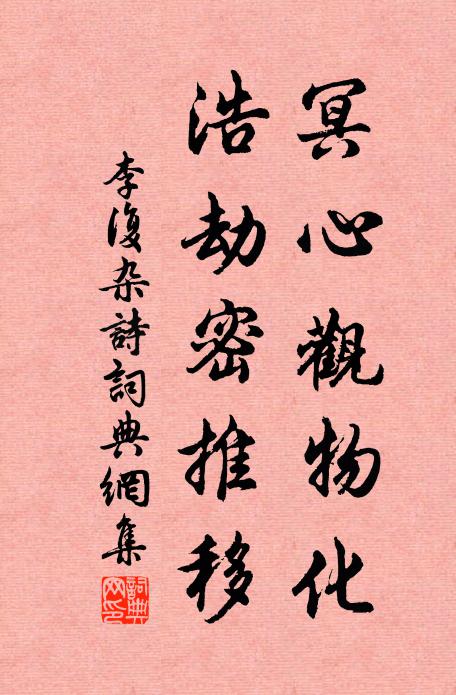 冥心觀物化
浩劫密推移
李復杂詩詞典網集
詞典网印